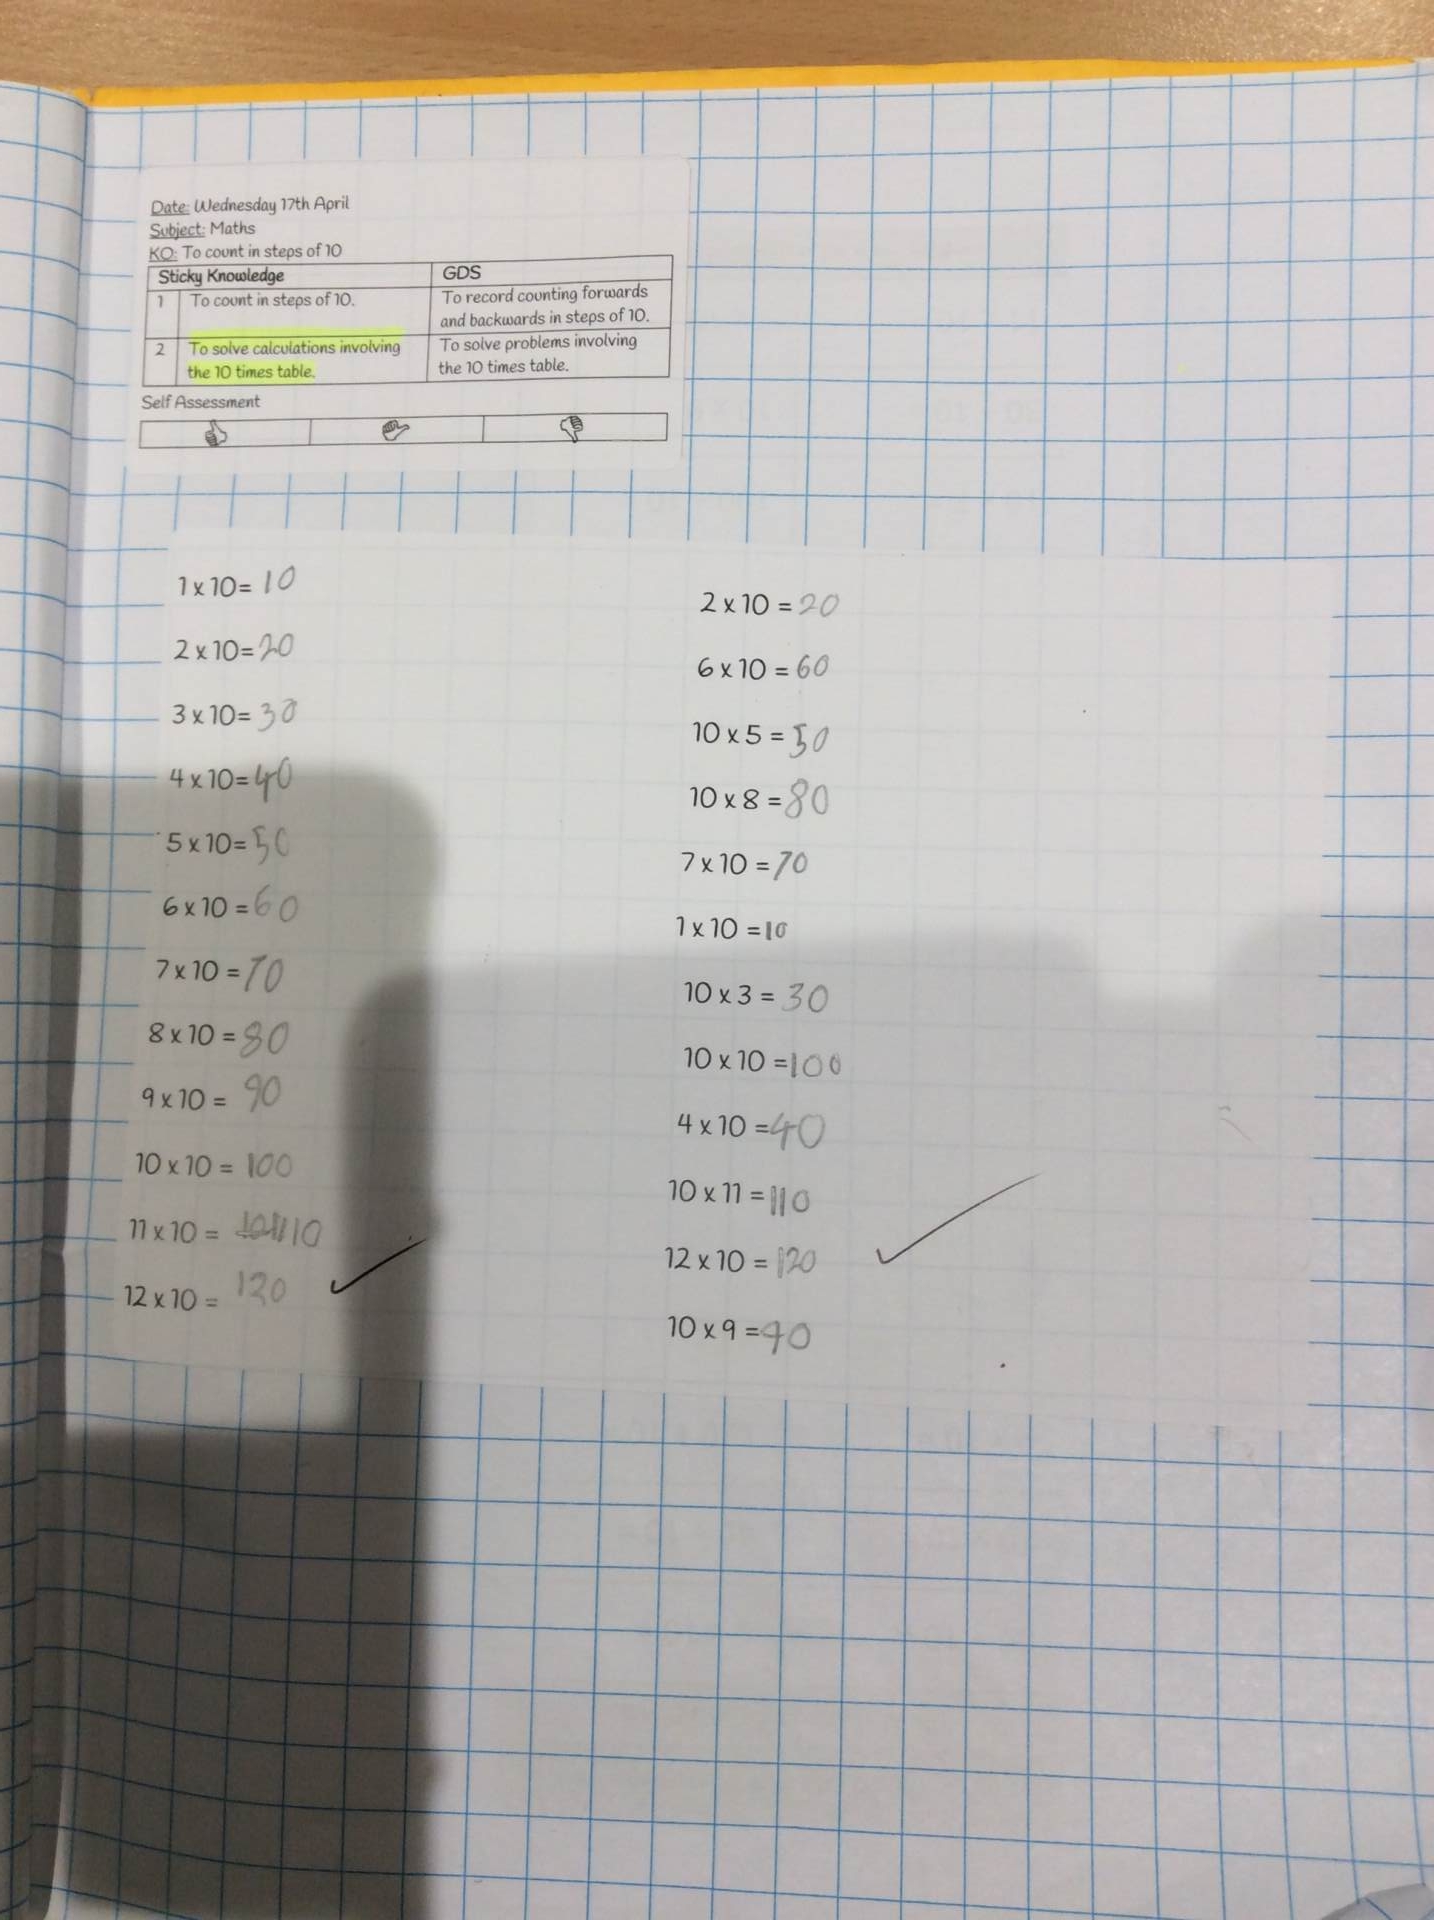 Date: Wednesday 17th April
Subject: Maths
KO: To count in steps of 10
Sticky Knowledge GDS
1 To count in steps of 10. To record counting forwards
and backwards in steps of 10.
2 To solve calculations involving
the 10 times table. To solve problems involving
the 10 times table.
Self Assessment
1 x 10= 10
2 x 10= 20
3 x 10= 30
4 x 10= 40
5 x 10= 50
6 x 10 = 60
7 x 10 = 70
8 x 10 = 80
9 x 10 = 90
10 x 10 = 100
11 x 10 = 110
12 x 10 = 120
2 x 10 = 20
6 x 10 = 60
10 x 5 = 50
10 x 8 = 80
7 x 10 = 70
1 x 10 = 10
10 x 3 = 30
10 x 10 = 100
4 x 10 = 40
10 x 11 = 110
12 x 10 = 120
10 x 9 = 90